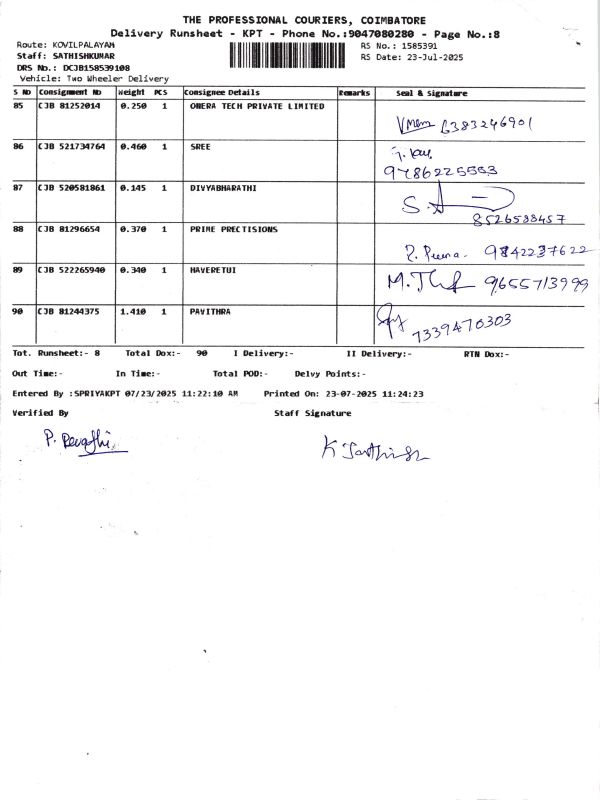 THE PROFESSIONAL COURIERS, COIMBATORE
Delivery Runsheet - KPT - Phone No.:9047080280 - Page No.:8
Route: KOVILPALAYAM RS No.: 1585391
Staff: SATHISHKUMAR RS Date: 23-Jul-2025
DRS No.: DCJB158539108
Vehicle: Two Wheeler Delivery
S No Consignment No Weight PCS Consignee Details Remarks Seal & Signature
85 CJB 81252014 0.250 1 ONERA TECH PRIVATE LIMITED
6383246901
86 CJB 521734764 0.460 1 SREE
9786225553
87 CJB 520581861 0.145 1 DIVYABHARATHI
8526588457
88 CJB 81296654 0.370 1 PRIME PRECTISIONS
9842237622
89 CJB 522265940 0.340 1 HAVERETUI
9655713999
90 CJB 81244375 1.410 1 PAVITHRA
7339470303
Tot. Runsheet:- 8 Total Dox:- 90 I Delivery:- II Delivery:- RTN Dox:-
Out Time:- In Time:- Total POD:- Delvy Points:-
Entered By :SPRIYAKPT 07/23/2025 11:22:10 AM Printed On: 23-07-2025 11:24:23
Verified By Staff Signature